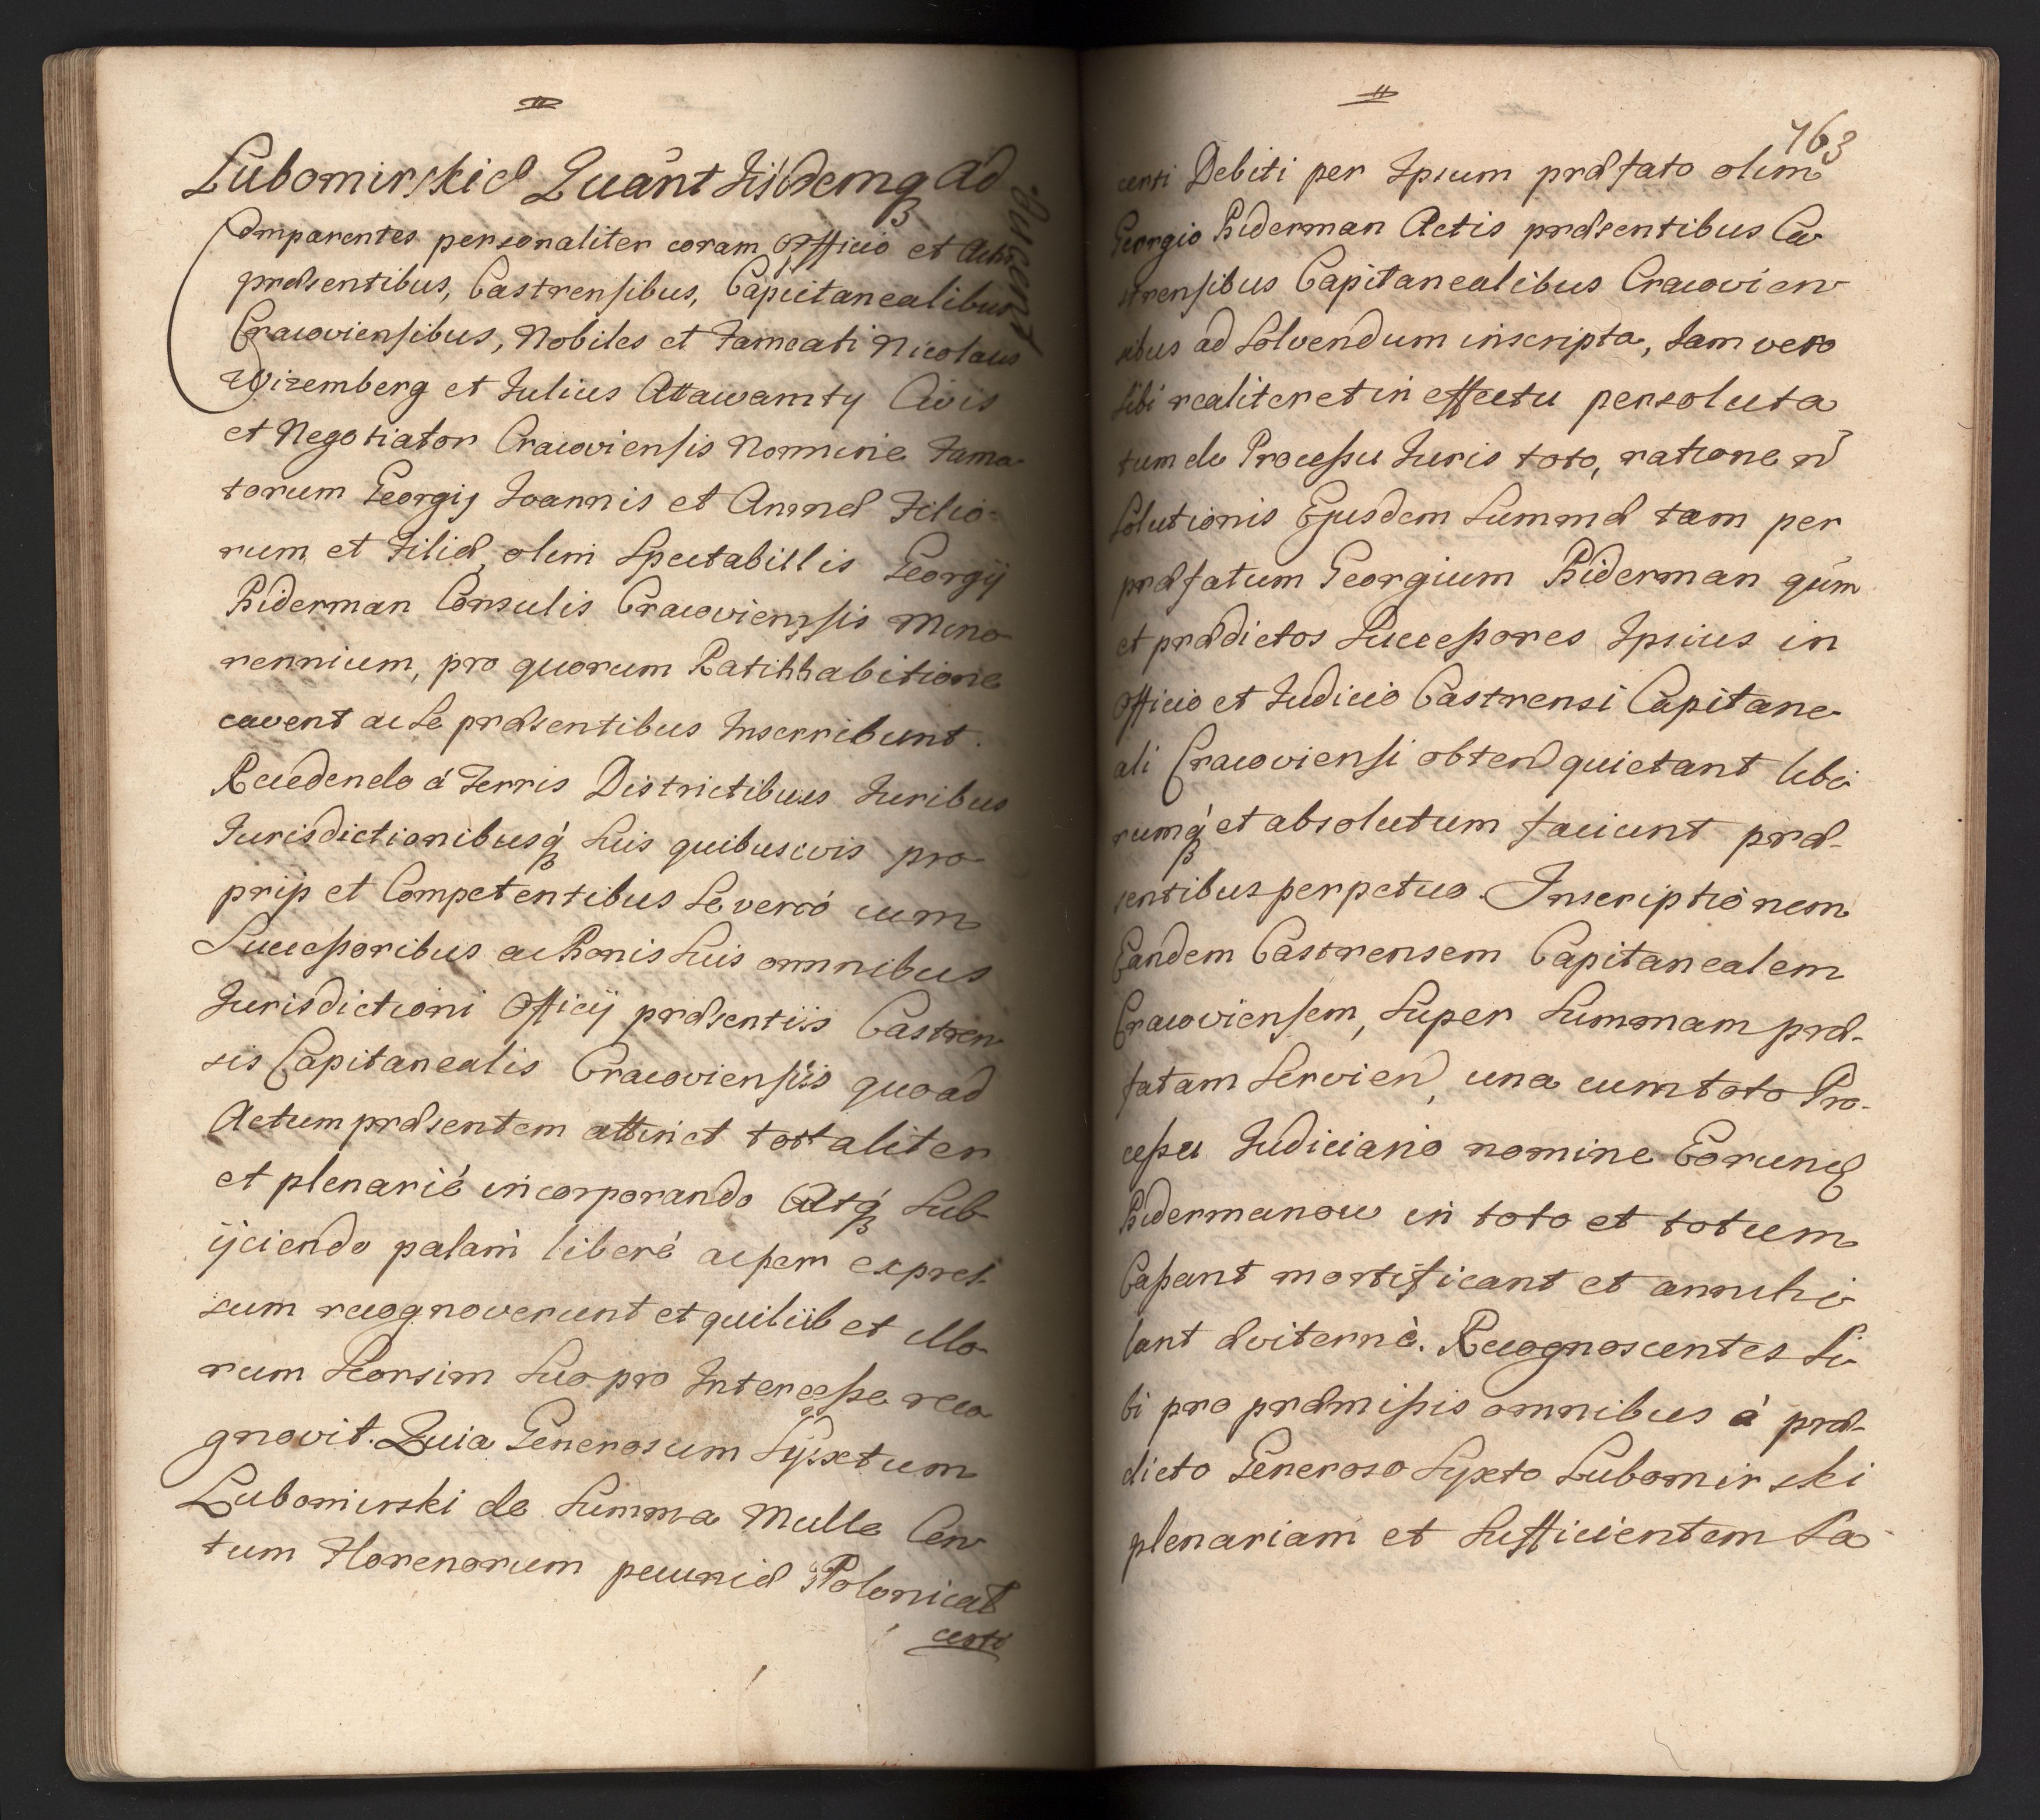 Lubomirskiæ Quant Iisdemq Ad
ducont
Comparentes personaliter coram Officio et Actis
præsentibus, Castrensibus, Capitanealibus
Cracoviensibus, Nobiles et Fameati Nicolaus
Wizemberg et Julius Attawamty Civis
et Negotiator Cracoviensis Nomine Fama
torum Georgij Joannis et Annæ Filio-
rum et Filiæ, olim Spectabillis Georgij
Biderman Consulis Cracoviensis Mino
rennium, pro quorum Ratihhabitione
cavent ac Se præsentibus Inscribunt.
Recedendo á Terris Districtibus Iuribus
Iurisdictionibusq́ Suis quibusvis pro-
prijs et Competentibus Se veró cum
Successoribus ac Bonis Suis omnibus
Iurisdictioni Officij præsentiis Castren
sis Capitanealis Cracoviensis quoad
Actum præsentem attinet tottaliter
et plenarié incorporando Atq́ Sub
ijciendo palam liberé ac per expres
sum recognoverunt et quilibet illo
rum Seorsim Suo pro Interesse reco
gnovit. Quia Generosum Syxtum
Lubomirski de Summa Mille Cen
tum Florenorum pecuniæ Polonicæ
certi
763
certi Debiti per Ipsum præfato olim
Georgio Biderman Actis præsentibus Ca
strensibus Capitanealibus Cracovien
sibus ad Solvendum inscripta, Iam vero
Sibi realiter et in effectu persoluta
tum de Processu Iuris toto, ratione ñ
Solutionis Ejusdem Summæ tam per
præfatum Georgium Biderman qúm
et prædictos Successores Ipsius in
Officio et Iudicio Castrensi Capitane
ali Cracoviensi obten quietant libe
rumq́ et absolutum faciunt præ-
sentibus perpetuo. Inscriptionem
Eandem Castrensem Capitanealem
Cracoviensem, Super Summam præ-
fatam Servien, una cum toto Pro-
cessu Iudiciario nomine Eorund
Bidermanow in toto et totum
Cassant mortificant et annihi
lant æviterné. Recognoscentes Si
bi pro præmissis omnibus á præ-
dicto Generoso Syxto Lubomirski
plenariam et Sufficientem Sa